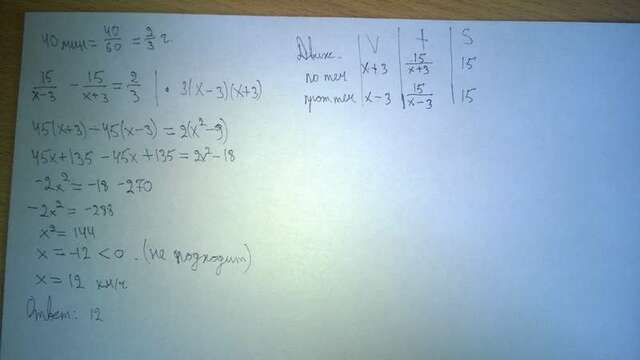 40 мин = 40/60 = 2/3 ч.
15/(x-3) - 15/(x+3) = 2/3 | · 3(x-3)(x+3)
45(x+3) - 45(x-3) = 2(x²-9)
45x+135 - 45x+135 = 2x²-18
-2x² = -18 -270
-2x² = -288
x² = 144
x = -12 < 0. (не подходит)
x = 12 км/ч
Ответ: 12
Движ. | V | t | S
по теч | x+3 | 15/(x+3) | 15
прот теч | x-3 | 15/(x-3) | 15